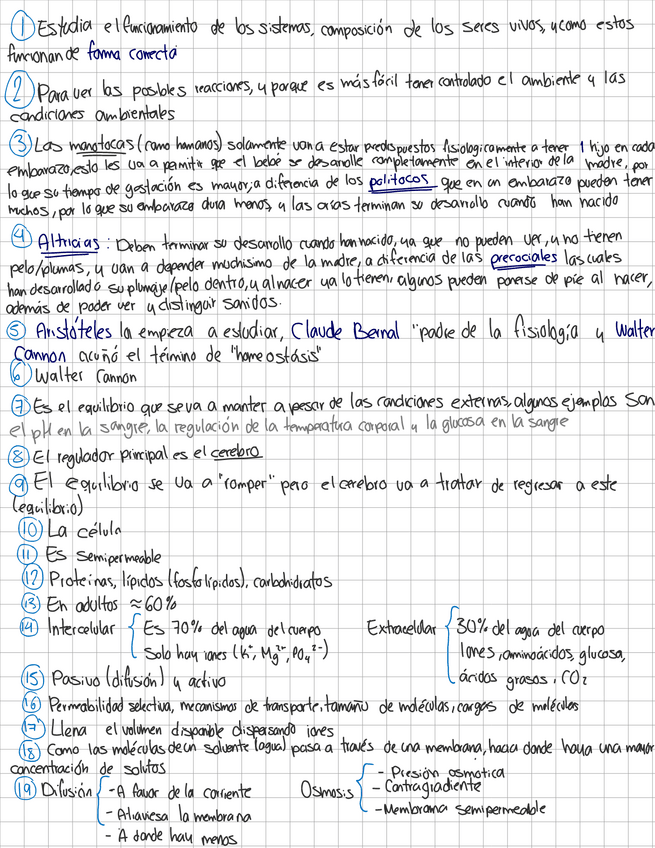 ① Estudia el funcionamiento de los sistemas, composición de los seres vivos, y como estos
funcionan de forma correcta
② Para ver las posibles reacciones, y porque es más fácil tener controlado el ambiente y las
condiciones ambientales
③ Las monotocas (como humanos) solamente van a estar predispuestos fisiologicamente a tener 1 hijo en cada
embarazo, esto les va a permitir que el bebé se desarrolle completamente en el interior de la madre, por
lo que su tiempo de gestación es mayor, a diferencia de los politocos que en un embarazo pueden tener
muchos, por lo que su embarazo dura menos, y las crías terminan su desarrollo cuando han nacido
④ Altricias: Deben terminar su desarrollo cuando han nacido, ya que no pueden ver, y no tienen
pelo/plumas, y van a depender muchisimo de la madre, a diferencia de las precociales las cuales
han desarrollado su plumaje/pelo dentro, y al nacer ya lo tienen, algunos pueden ponerse de pie al nacer,
además de poder ver y distinguir sonidos.
⑤ Aristóteles la empieza a estudiar, Claude Bernal "padre de la fisiología y Walter
Cannon acuñó el término de "homeostásis"
⑥ Walter Cannon
⑦ Es el equilibrio que se va a mantener a pesar de las condiciones externas, algunos ejemplos son
el pH en la sangre, la regulación de la temperatura corporal y la glucosa en la sangre
⑧ El regulador principal es el cerebro
⑨ El equilibrio se va a "romper" pero el cerebro va a tratar de regresar a este
(equilibrio)
⑩ La célula
⑪ Es semipermeable
⑫ Proteínas, lípidos (fosfolípidos), carbohidratos
⑬ En adultos ≈60%
⑭ Intercelular { Es 70% del agua del cuerpo
Solo hay iones (K⁺, Mg²⁺, PO₄²⁻)
Extracelular { 30% del agua del cuerpo
Iones, aminoácidos, glucosa,
ácidos grasos, CO₂
⑮ Pasivo (difusión) y activo
⑯ Permabilidad selectiva, mecanismos de transporte, tamaño de moléculas, cargas de moléculas
⑰ Llena el volumen disponible dispersando iones
⑱ Como las moléculas de un solvente (agua) pasa a través de una membrana, hacia donde haya una mayor
concentración de solutos
⑲ Difusión { - A favor de la corriente
- Atraviesa la membrana
- A donde hay menos
Osmosis { - Presión osmótica
- Contragradiente
- Membrana semipermeable